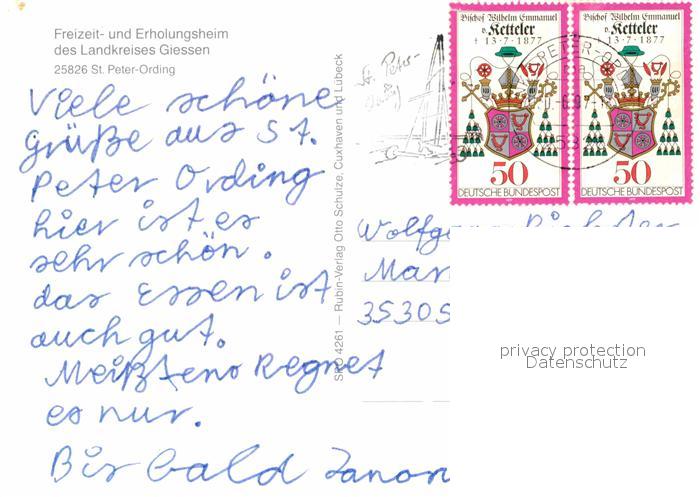 Freizeit- und Erholungsheim
des Landkreises Giessen
25826 St. Peter-Ording
Viele schöne
Grüße aus St.
Peter Ording
hier ist es
sehr schön.
das Essen ist
auch gut.
Meißtens Regnet
es nur.
Bis bald
SPO 4261 — Rubin-Verlag Otto Schulze, Cuxhaven und Lübeck
St. Peter-
Bischof Wilhelm Emmanuel
v. Ketteler
† 13·7·1877
50
DEUTSCHE BUNDESPOST
Bischof Wilhelm Emmanuel
v. Ketteler
† 13·7·1877
50
DEUTSCHE BUNDESPOST
PETER-OR
Wolfg
Mar
35305
privacy protection
Datenschutz